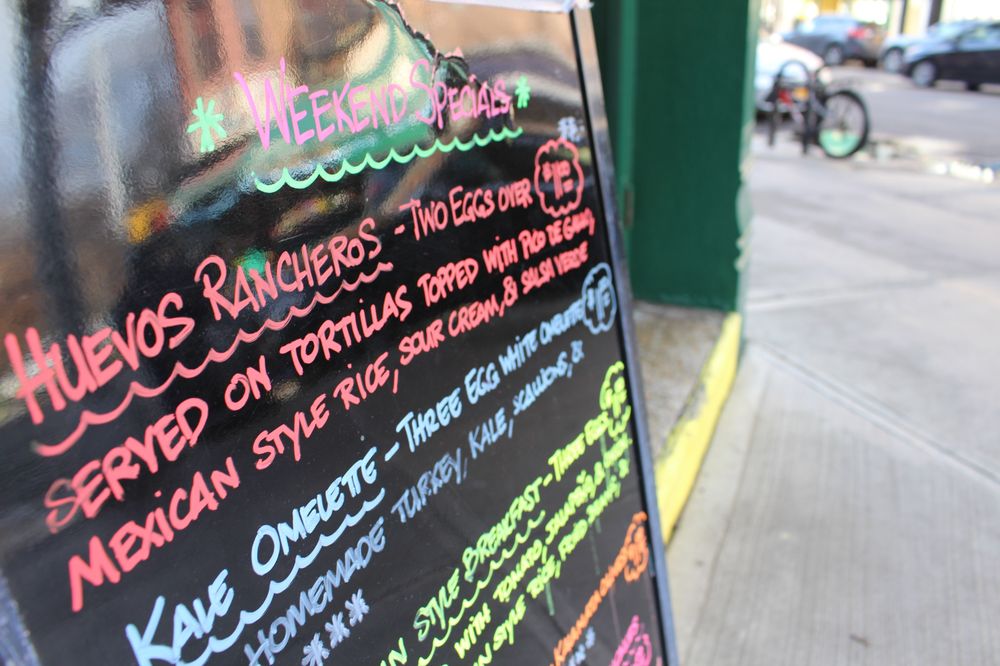 * WEEKEND SPECIALS *
HUEVOS RANCHEROS - TWO EGGS OVER
SERVED ON TORTILLAS TOPPED WITH PICO DE GALLO,
MEXICAN STYLE RICE, SOUR CREAM, & SALSA VERDE
KALE OMELETTE - THREE EGG WHITE OMELETTE
HOMEMADE TURKEY, KALE, SCALLIONS, &
***
STYLE BREAKFAST - THREE EGGS
WITH TOMATO,
STYLE RICE,